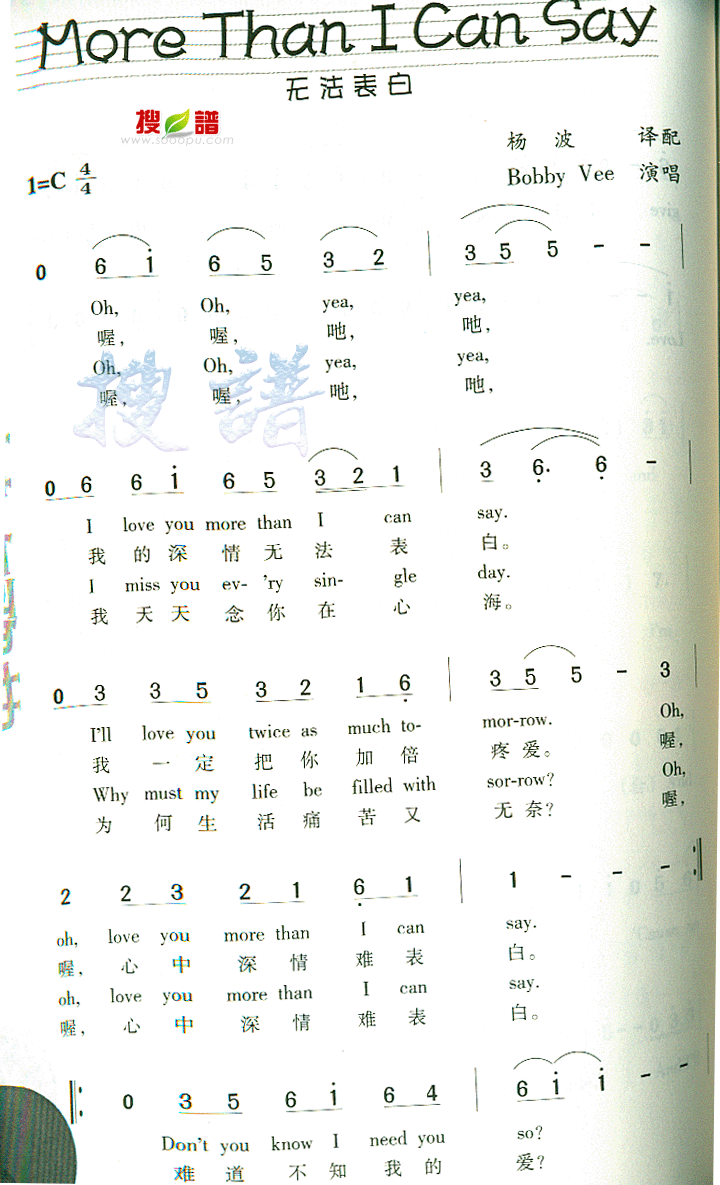 More Than I Can Say
无法表白
搜 谱
www.sooopu.com
杨 波 译配
1=C 4/4
Bobby Vee 演唱
0 6 i 6 5 3 2 | 3 5 5 - - |
Oh, Oh, yea, yea,
喔, 喔, 吔, 吔,
Oh, Oh, yea, yea,
喔, 喔, 吔, 吔,
搜 谱
0 6 6 i 6 5 3 2 1 | 3 6. 6 - |
I love you more than I can say.
我 的 深 情 无 法 表 白。
I miss you ev- 'ry sin- gle day.
我 天 天 念 你 在 心 海。
0 3 3 5 3 2 1 6 | 3 5 5 - 3 |
I'll love you twice as much to- mor-row. Oh,
我 一 定 把 你 加 倍 疼 爱。 喔,
Why must my life be filled with sor-row? Oh,
为 何 生 活 痛 苦 又 无 奈? 喔,
2 2 3 2 1 6 1 | 1 - - - :|
oh, love you more than I can say.
喔, 心 中 深 情 难 表 白。
oh, love you more than I can say.
喔, 心 中 深 情 难 表 白。
|: 0 3 5 6 i 6 4 | 6 i i - - |
Don't you know I need you so?
难 道 不 知 我 的 爱?
give
Love.